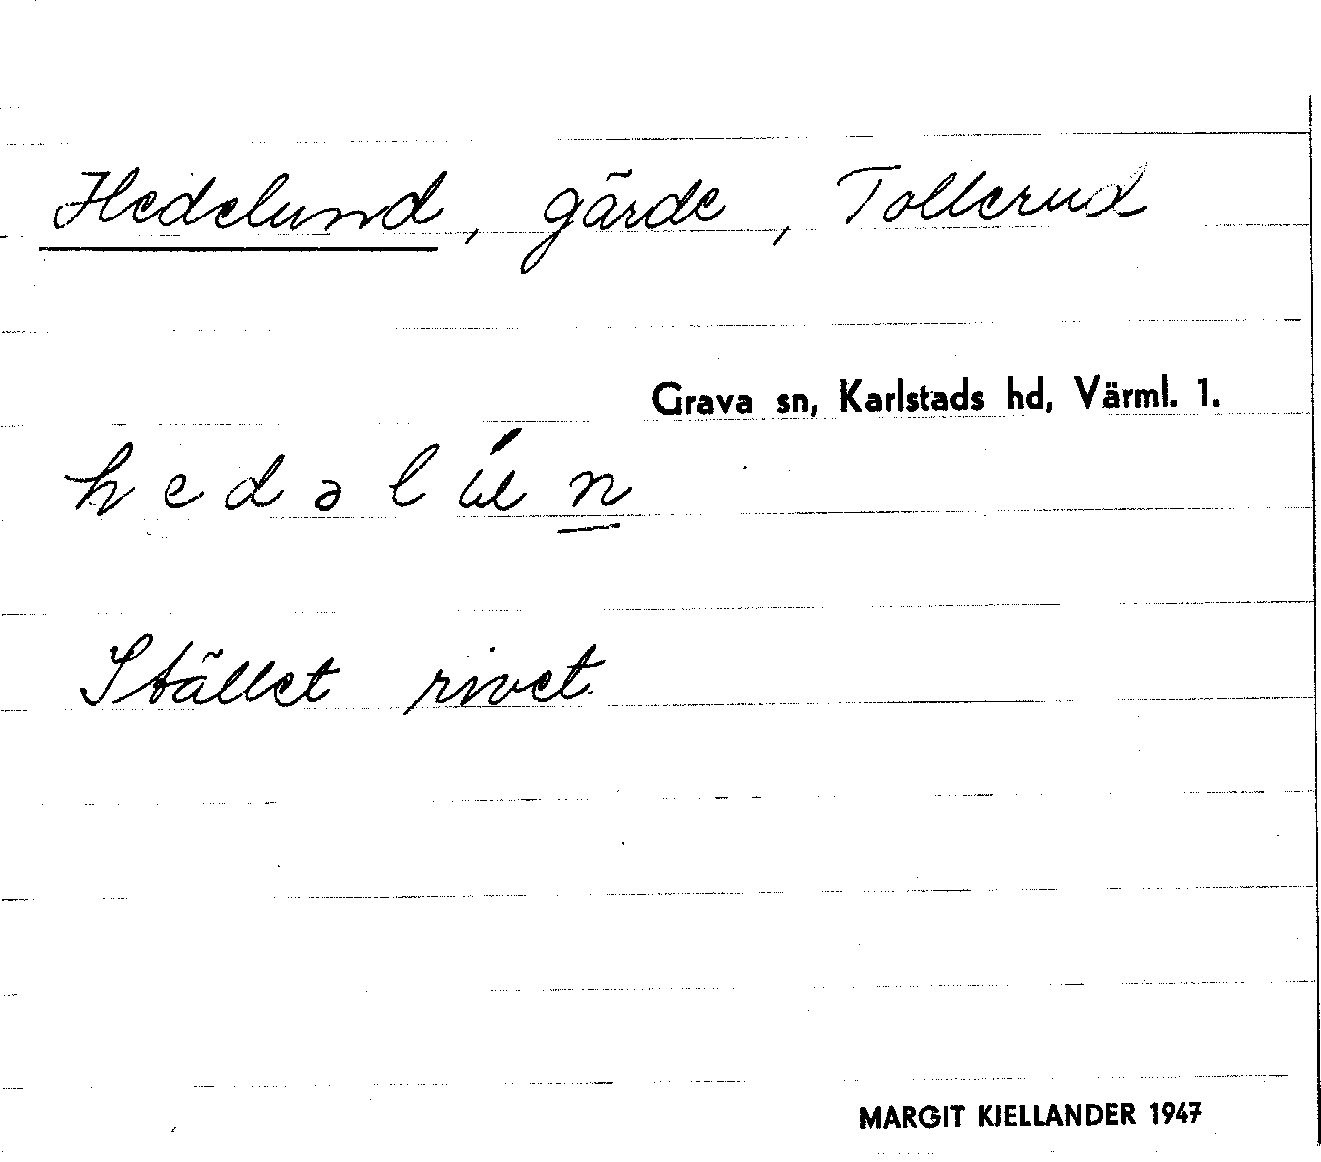 Hedelund, gärde, Tollerud
Grava sn, Karlstads hd, Värml. 1.
h e d ə l ú n
Stället rivet
MARGIT KJELLANDER 1947